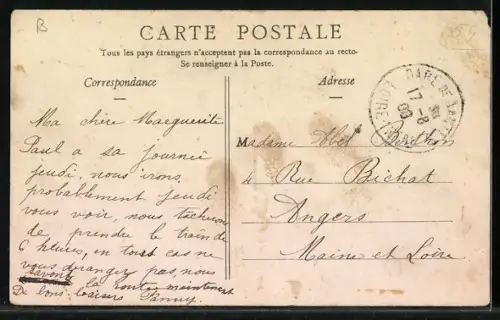 B
CARTE POSTALE
Tous les pays étrangers n'acceptent pas la correspondance au recto-
Se renseigner à la Poste.
Correspondance
Ma chère Marguerite
Paul a sa journée
jeudi, nous irons
probablement jeudi
vous voir, nous tacherons
de prendre le train de
6 heures, en tout cas ne
vous derangez pas, nous
savons la route maintenant
De bons baisers Fanny.
Adresse
GARE DE NANTES
17-8
LOIRE
Madame Abel
4 Rue Bichat
Angers
Maine et Loire